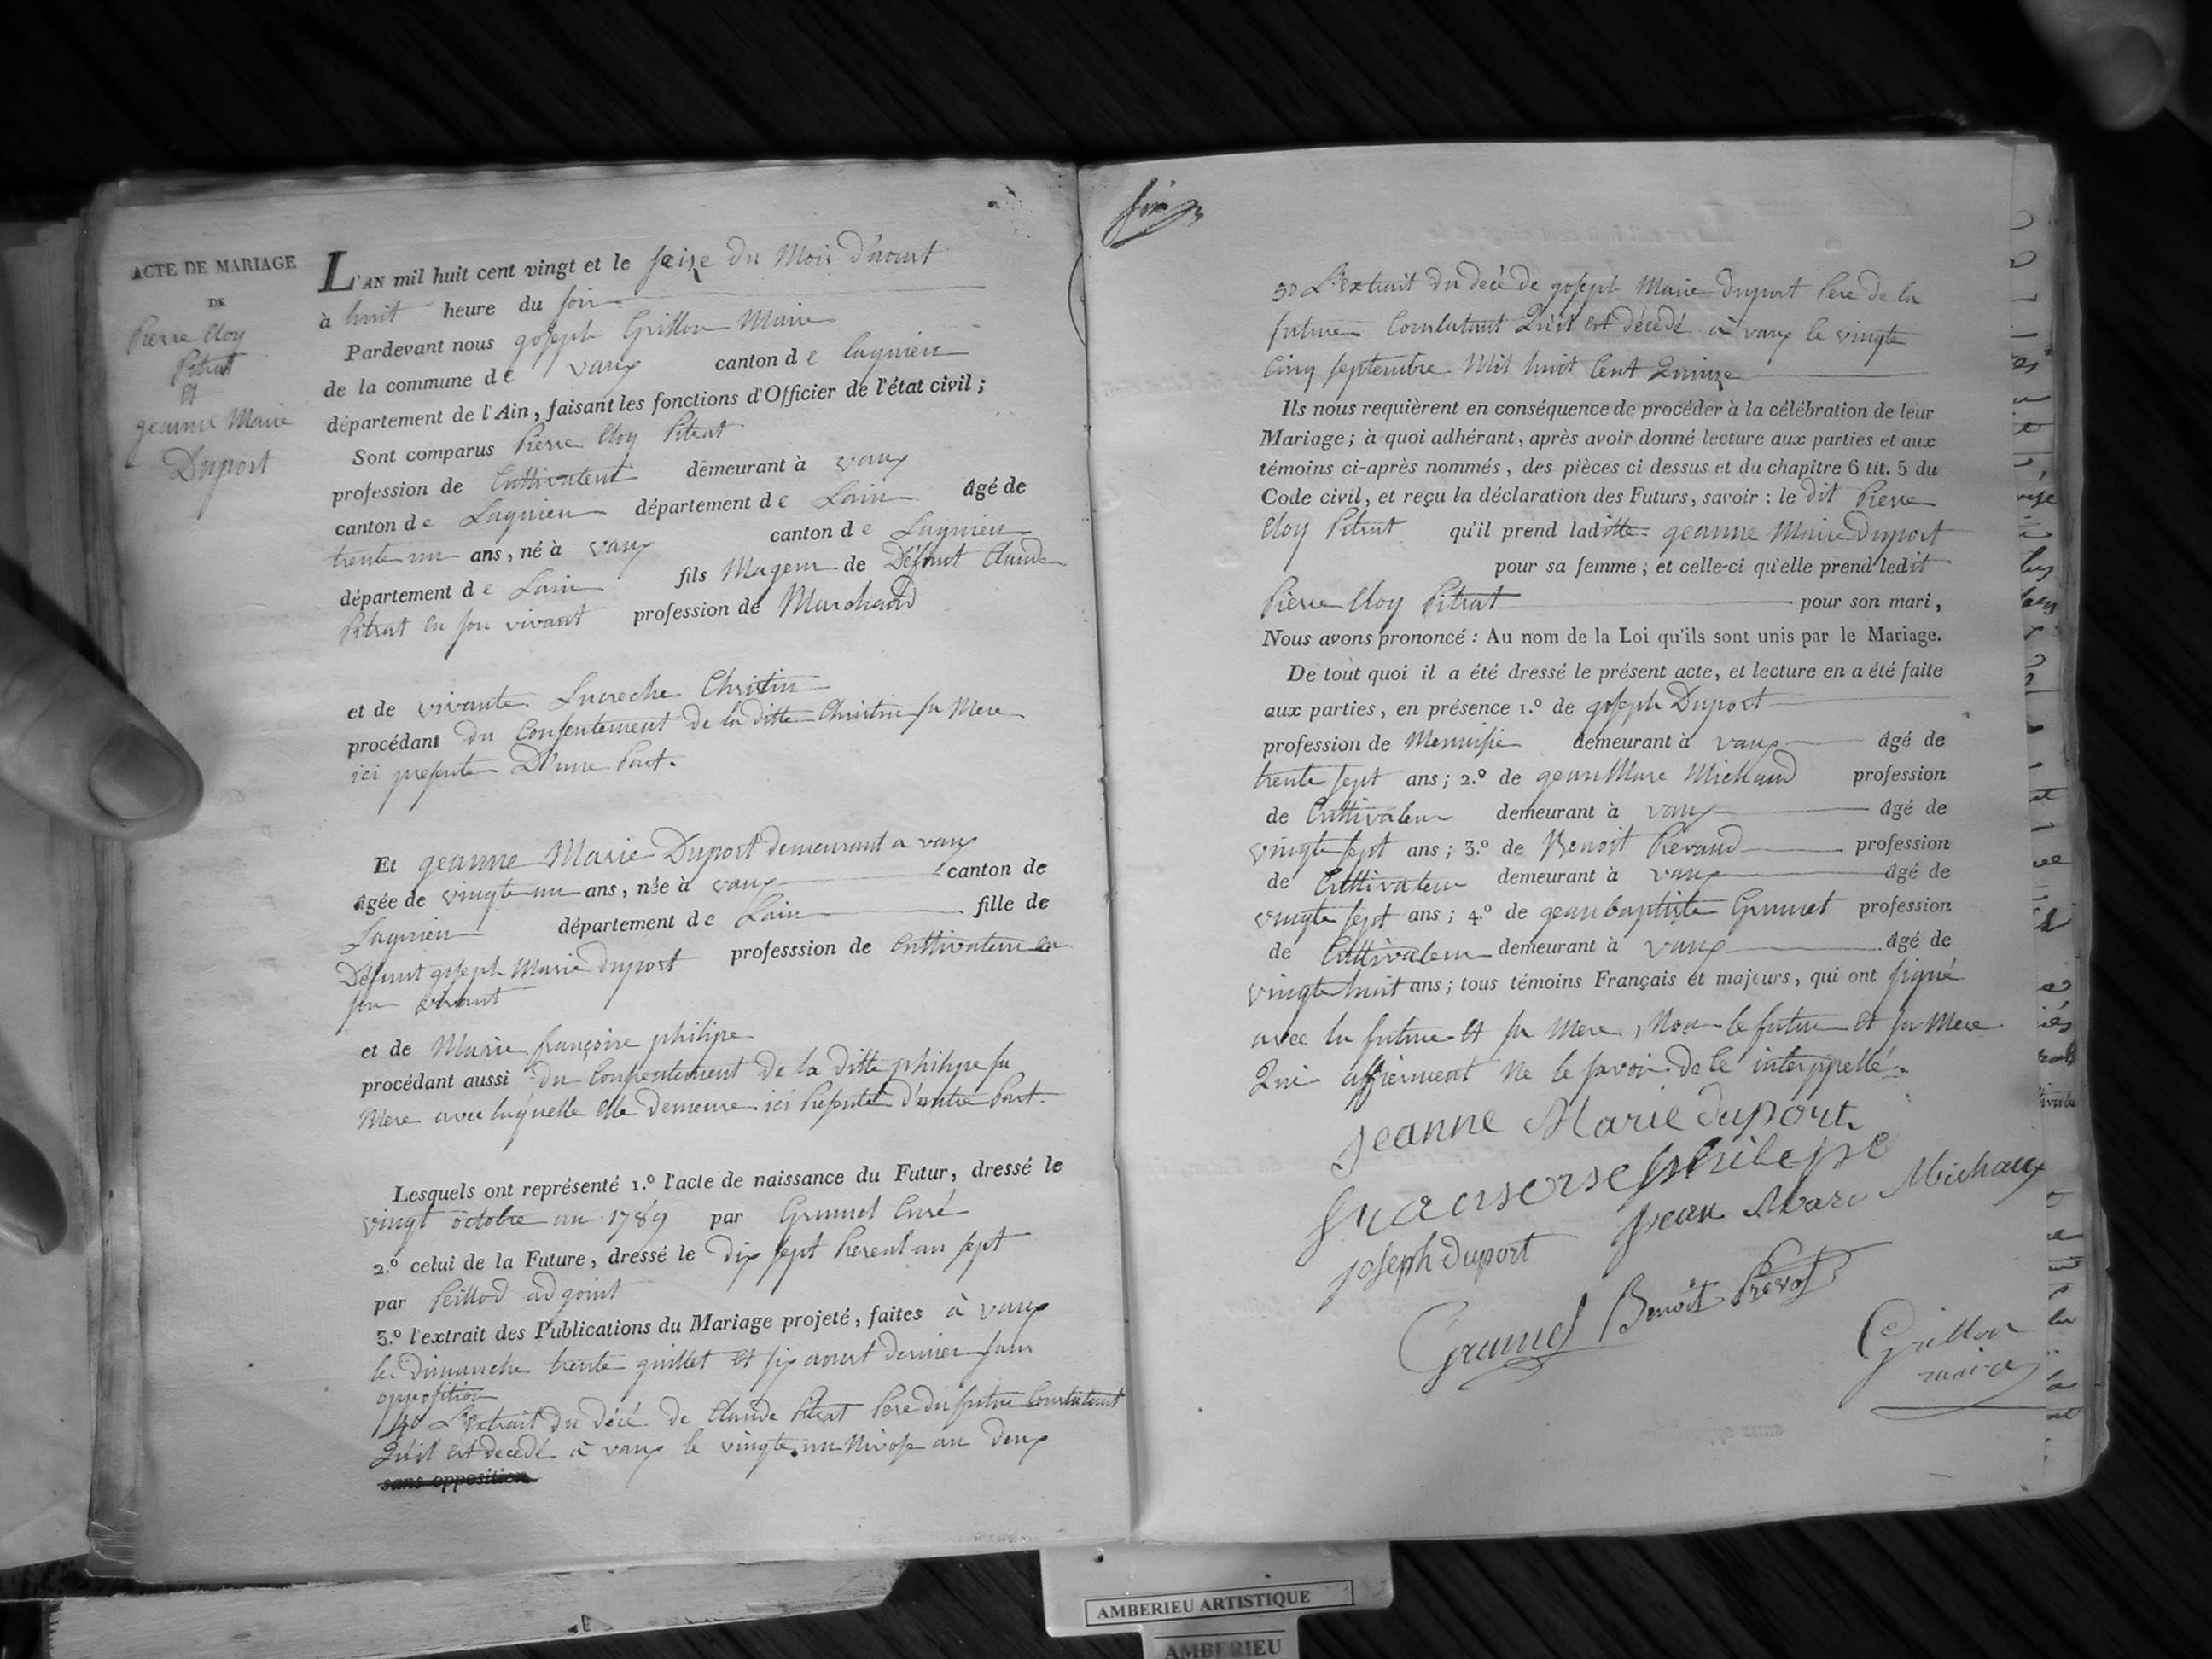 ACTE DE MARIAGE
DE
Pierre Eloy
Pitrat
et
geanne Marie
Duport
L'AN mil huit cent vingt et le seize du Mois d'aoust
à huit heure du soir
Pardevant nous goseph Grillon Maire
de la commune de vaux canton de lagnieu
département de l'Ain, faisant les fonctions d'Officier de l'état civil ;
Sont comparus Pierre Eloy Pitrat
profession de Cultivateur demeurant à vaux
canton de Lagnieu département de Lain âgé de
trente un ans, né à vaux canton de Lagnieu
département de Lain fils Mageur de Défunt Claude
Pitrat en son vivant profession de Marchand
et de vivante Lucreche Christin
procédant du Consentement de la ditte Christin sa Mere
ici presente D'une part.
Et geanne Marie Duport demeurant a vaux
âgée de vingte un ans, née à vaux canton de
Lagnieu département de Lain fille de
Défunt goseph Marie duport professsion de Cultivateur en
son vivant
et de Marie françoise philipe
procédant aussi du Consentement de la ditte philipe sa
Mere avec laquelle elle demeure ici Presente d'autre part.
Lesquels ont représenté 1.º l'acte de naissance du Futur, dressé le
vingt octobre an 1789 par Grumel Curé
2.º celui de la Future, dressé le dix sept Pereal an sept
par Peillod adgoint
3.º l'extrait des Publications du Mariage projeté, faites à vaux
les Dimanche trente guillet et six aoust dernier sans
opposition
4o L'extrait du décé de Claude Pitrat Pere du futur Constatant
Qu'il est decedé à vaux le vingte un Nivose an deux
sans opposition
5o L'extrait du décé de goseph Marie duport Pere de la
future Constatant Qu'il est décedé à vaux le vingte
Cinq septembre Mil huit Cent Quinze
Ils nous requièrent en conséquence de procéder à la célébration de leur
Mariage ; à quoi adhérant, après avoir donné lecture aux parties et aux
témoins ci-après nommés, des pièces ci dessus et du chapitre 6 tit. 5 du
Code civil, et reçu la déclaration des Futurs, savoir : le dit Pierre
Eloy Pitrat qu'il prend laditte geanne Marie Duport
pour sa femme ; et celle-ci qu'elle prend ledit
Pierre Eloy Pitrat pour son mari,
Nous avons prononcé : Au nom de la Loi qu'ils sont unis par le Mariage.
De tout quoi il a été dressé le présent acte, et lecture en a été faite
aux parties, en présence 1.º de goseph Duport
profession de Menuisie demeurant à vaux âgé de
trente sept ans ; 2.º de gean Marc Michaud profession
de Cultivateur demeurant à vaux âgé de
vingte sept ans ; 3.º de Benoit Prevaud profession
de Cultivateur demeurant à vaux âgé de
vingte sept ans ; 4.º de gean baptiste Grumet profession
de Cultivateur demeurant à vaux âgé de
vingte huit ans ; tous témoins Français et majeurs, qui ont signé
avec la future et sa Mere, Non le futur et sa Mere
Qui affierment Ne le savoir de ce interppellé
jeanne Marie duport
franseise philepe
joseph duport jean Marc Michaux
Grumel Benoit Prevot
Grillon
maire
AMBERIEU ARTISTIQUE
AMBERIEU